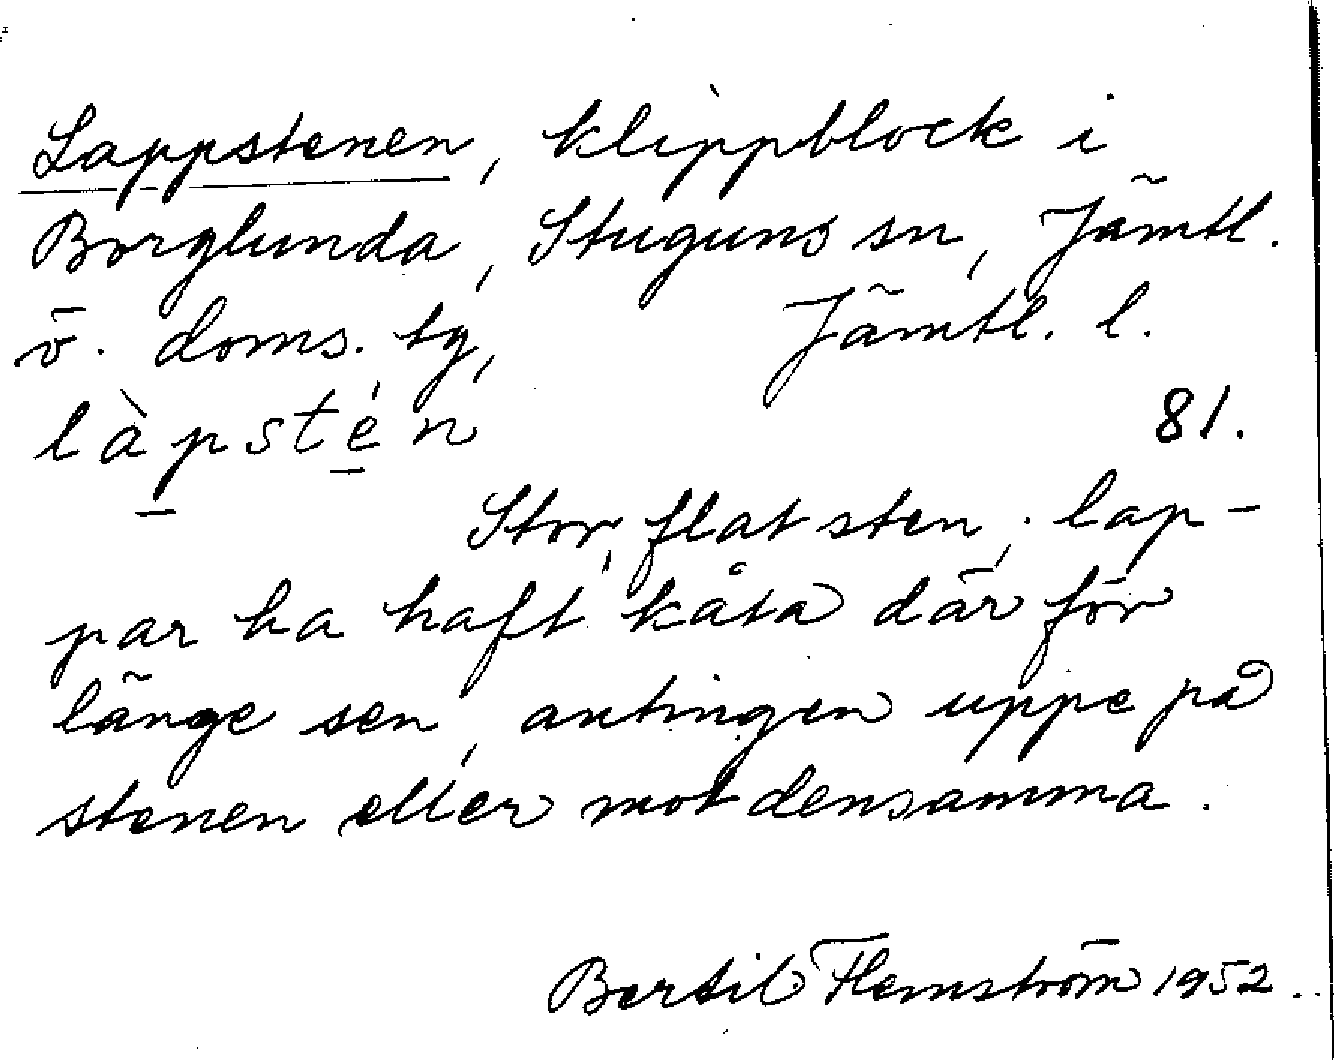 Lappstenen, klippblock i
Borglunda, Stuguns sn, Jämtl.
ö. doms. tg, Jämtl. l.
làpsten 81.
Stor, flat sten; lap-
par ha haft kåta där för
länge sen, antingen uppe på
stenen eller mot densamma.
Bertil Flemström 1952.